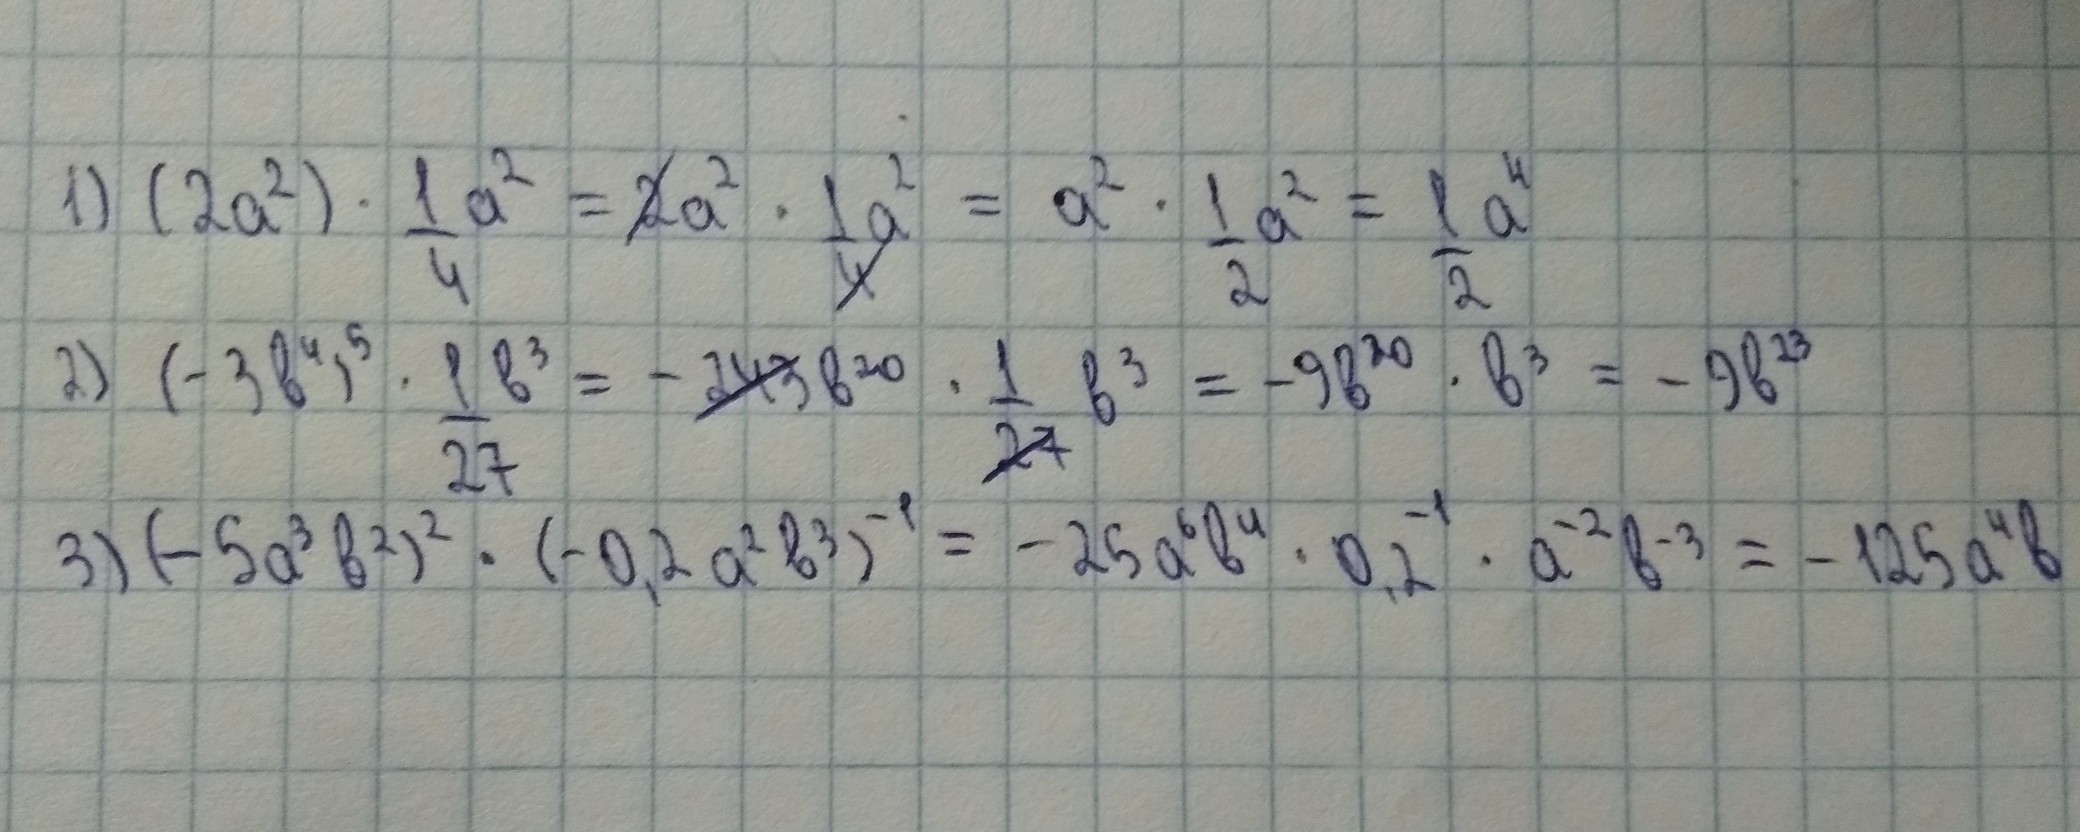 1) (2a²) · 1/4 a² = 2a² · 1/4 a² = a² · 1/2 a² = 1/2 a⁴
2) (-3b⁴)⁵ · 1/27 b³ = -243b²⁰ · 1/27 b³ = -9b²⁰ · b³ = -9b²³
3) (-5a³b²)² · (-0,2a²b³)⁻¹ = -25a⁶b⁴ · 0,2⁻¹ · a⁻²b⁻³ = -125a⁴b